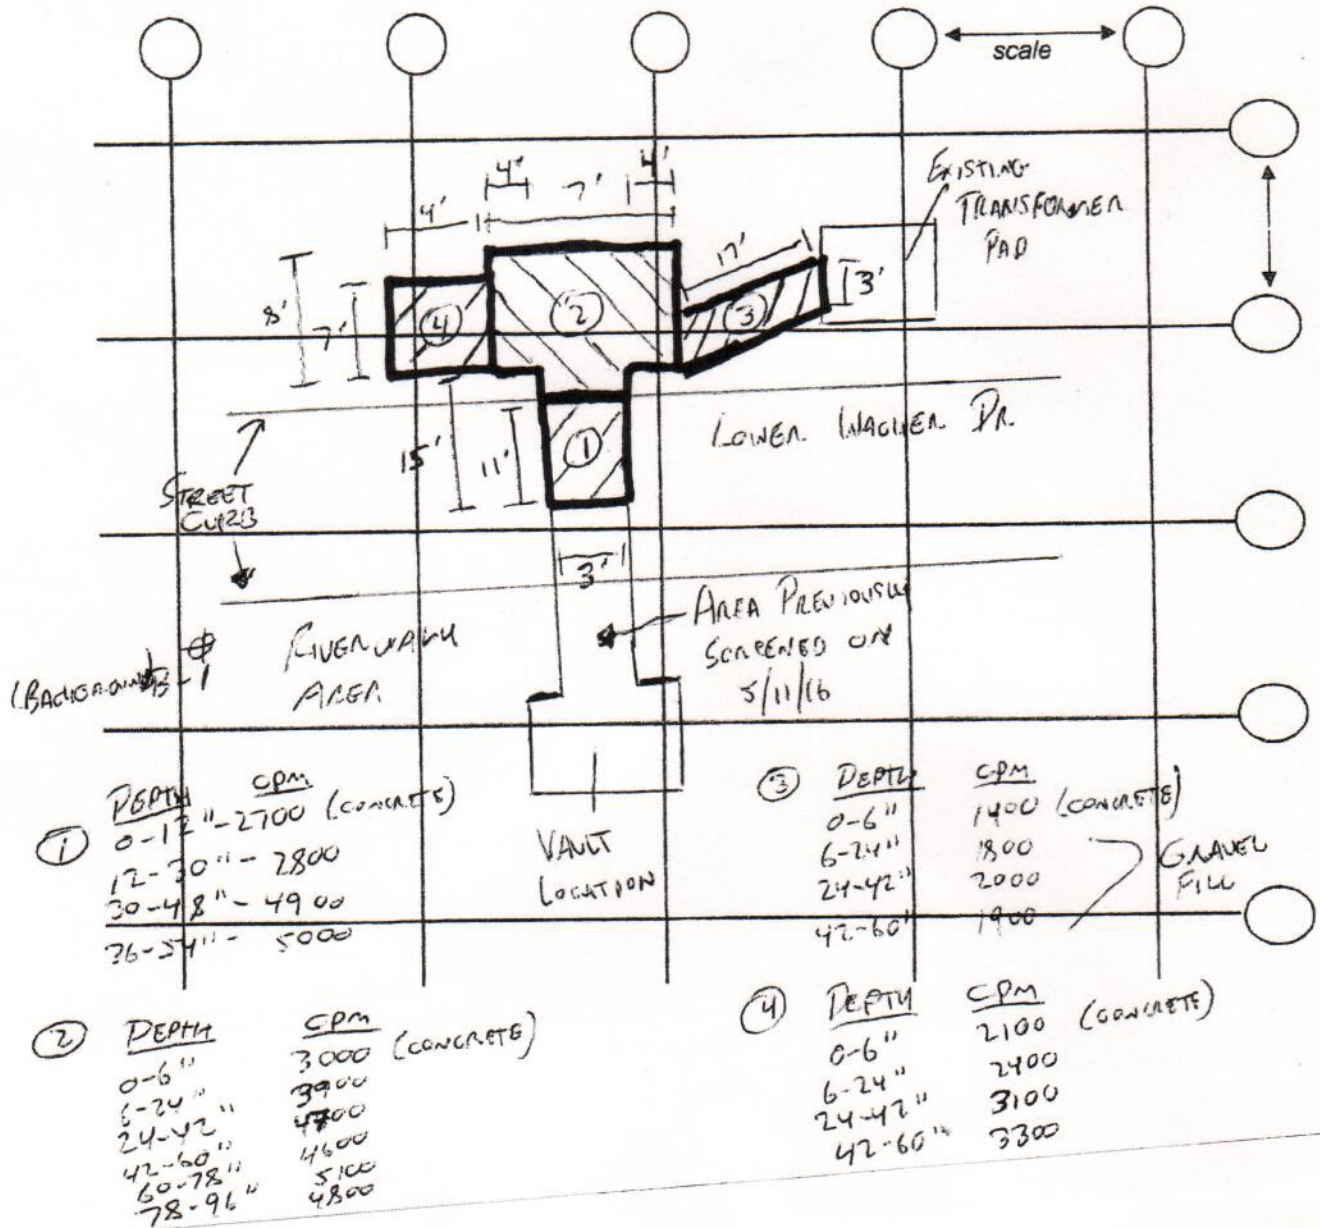 scale
4'
7'
4'
4'
EXISTING
TRANSFORMER
PAD
17'
3'
8'
7'
4
2
3
15'
11'
1
LOWER WACKER DR.
STREET
CURB
3'
AREA PREVIOUSLY
SCREENED ON
5/11/16
RIVERWALK
AREA
(BACKGROUND) B-1
VAULT
LOCATION
1 DEPTH CPM
0-12" - 2700 (CONCRETE)
12-30" - 2800
30-48" - 4900
36-54" - 5000
3 DEPTH CPM
0-6" 1400 (CONCRETE)
6-24" 1800
24-42" 2000
42-60" 1900
GRAVEL
FILL
2 DEPTH CPM
0-6" 3000 (CONCRETE)
6-24" 3900
24-42" 4700
42-60" 4600
60-78" 5100
78-96" 4800
4 DEPTH CPM
0-6" 2100 (CONCRETE)
6-24" 2400
24-42" 3100
42-60" 3300